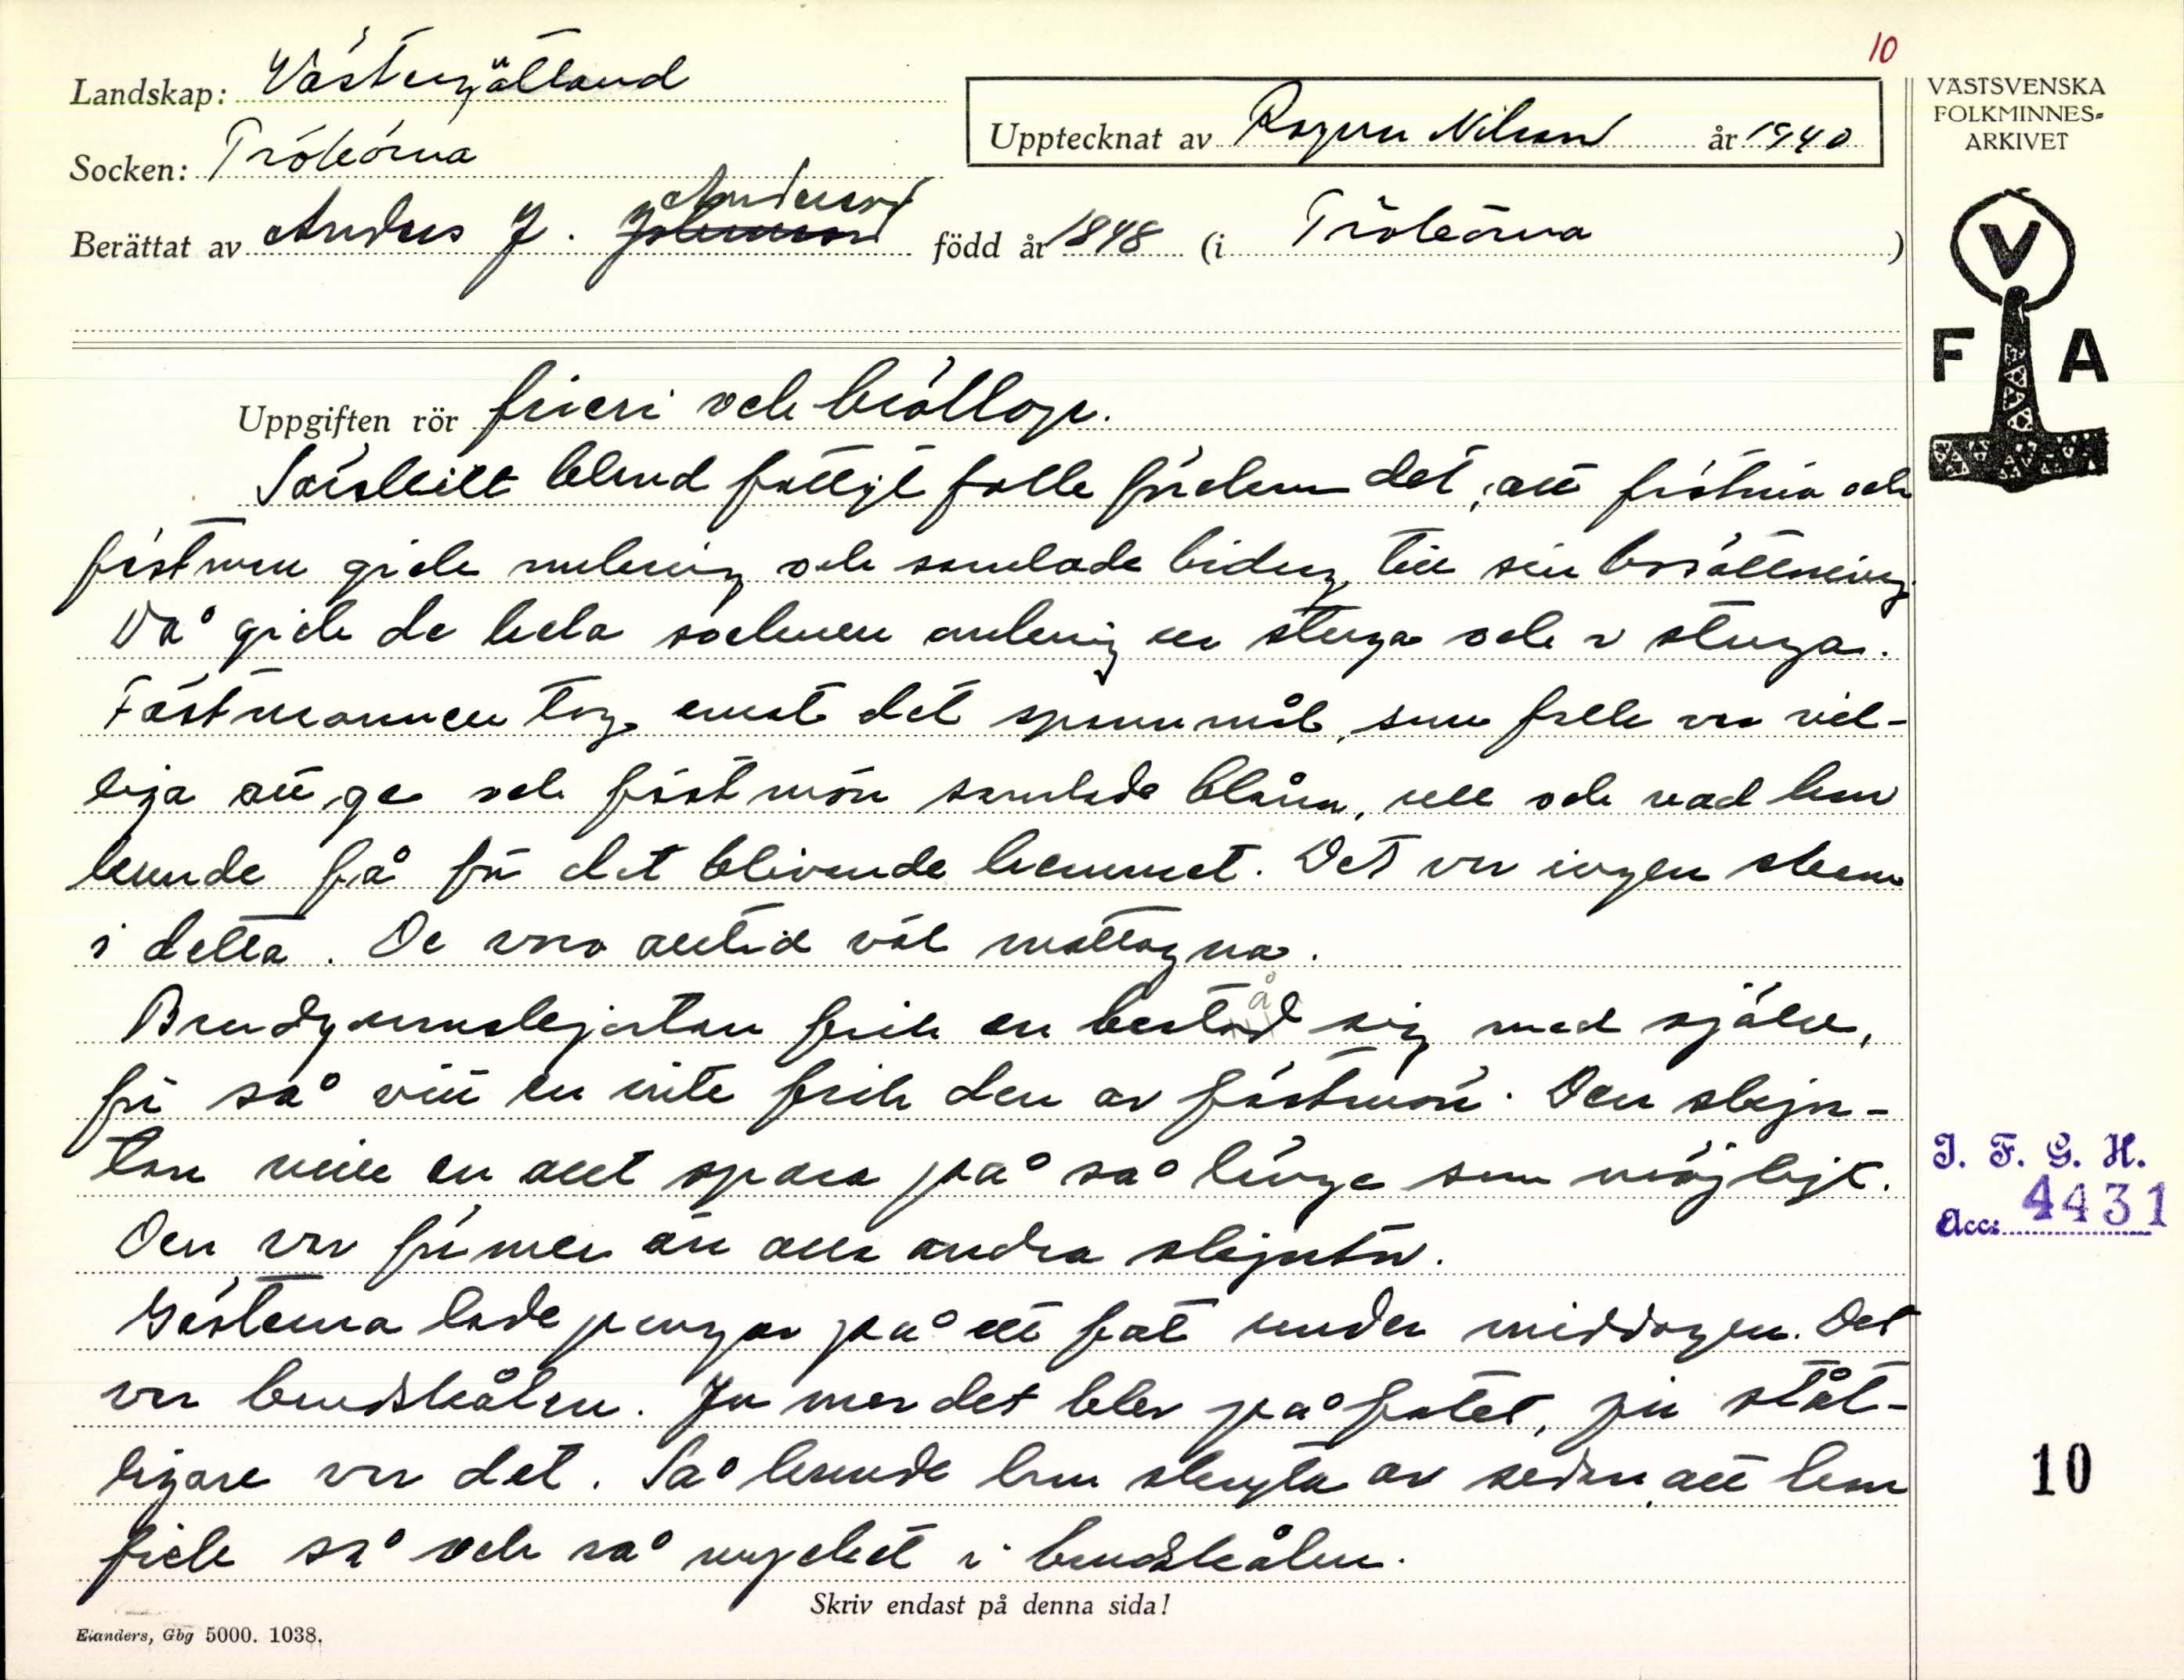 10
Landskap: Västergötland
VÄSTSVENSKA
FOLKMINNES=
ARKIVET
Upptecknat av Ragnar Nilsson år 1940
Socken: Trökörna
Anderson
Berättat av Anders J. Johansson född år 1848 (i Trökörna )
V
F A
Uppgiften rör frieri och bröllop.
Särskilt bland fattigt folk förekom det, att fästmö och
fästman gick omkring och samlade bidrag till sin bosättning.
Då gick de hela socknen omkring ur stuga och i stuga.
Fästmannen tog emot det spannmål, som folk var vil-
liga att ge och fästmön samlade blånor, ull och vad hon
kunde få för det blivande hemmet. Det var ingen skam
i detta. De voro alltid väl mottagna.
å
Brudgumskjortan fick en bestod sig med själv,
för så vitt en inte fick den av fästmön. Den skjor-
tan ville en allt spara på så länge som möjligt.
Den var förmer än alla andra skjortor.
Gästerna lade pengar på ett fat under middagen. Det
var brudskålen. Ju mer det blev på fatet, ju ståt-
ligare var det. Så kunde hon skryta av sedan, att hon
fick så och så mycket i brudskålen.
I. F. G. H.
Acc: 4431
10
Skriv endast på denna sida!
Elanders, Gbg 5000. 1038.